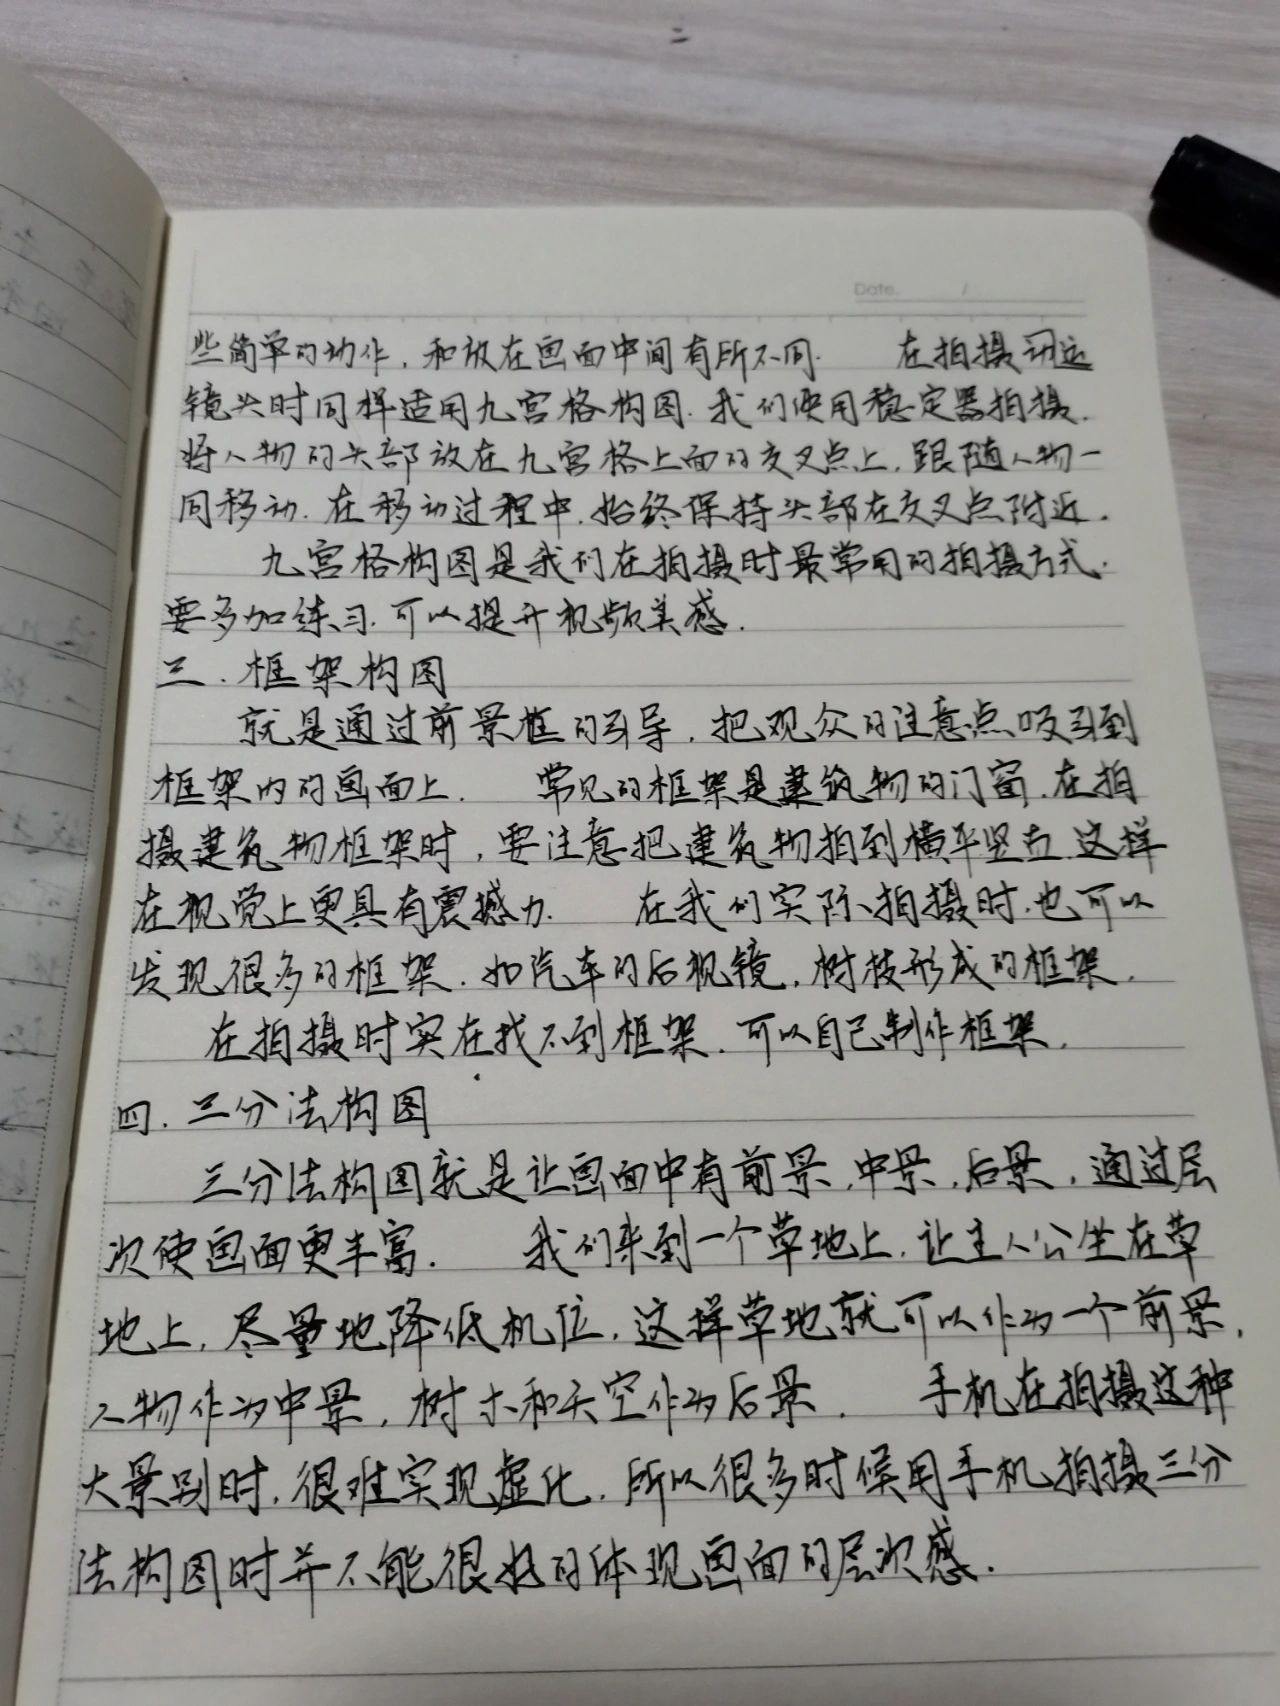 Date. /
些简单的动作，和放在画面中间有所不同. 在拍摄
镜头时同样适用九宫格构图. 我们使用稳定器拍摄.
将人物的头部放在九宫格上面的交叉点上, 跟随人物一
同移动. 在移动过程中, 始终保持头部在交叉点附近.
九宫格构图是我们在拍摄时最常用的拍摄方式.
要多加练习. 可以提升视频美感.
三. 框架构图
就是通过前景框的引导, 把观众的注意点吸引到
框架内的画面上. 常见的框架是建筑物的门窗. 在拍
摄建筑物框架时, 要注意把建筑物拍到横平竖直. 这样
在视觉上更具有震撼力. 在我们实际拍摄时, 也可以
发现很多的框架. 如汽车的后视镜, 树枝形成的框架.
在拍摄时实在找不到框架. 可以自己制作框架.
四. 三分法构图
三分法构图就是让画面中有前景, 中景, 后景, 通过层
次使画面更丰富. 我们来到一个草地上, 让主人公坐在草
地上, 尽量地降低机位, 这样草地就可以作为一个前景,
人物作为中景, 树木和天空作为后景. 手机在拍摄这种
大景别时, 很难实现虚化, 所以很多时候用手机拍摄三分
法构图时并不能很好的体现画面的层次感.